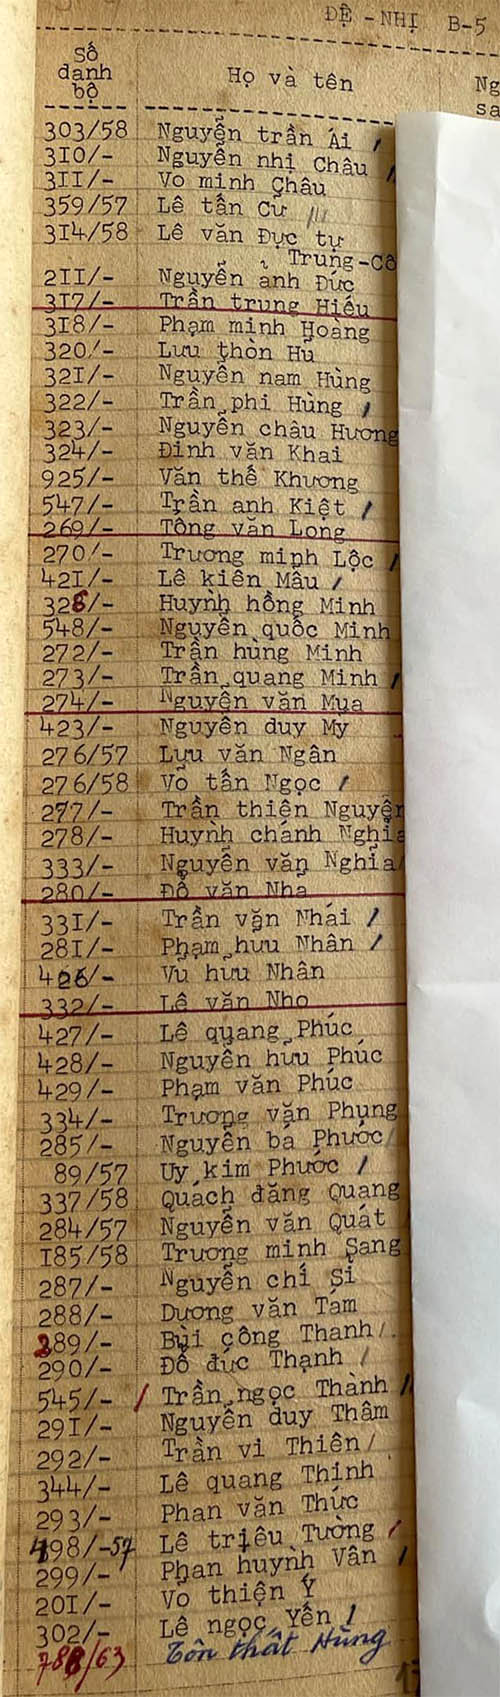 ĐỆ - NHỊ B-5
Số
danh
bộ
Họ và tên
Ng
sa
303/58 Nguyễn trần Ái
310/- Nguyễn nhị Châu
311/- Vo minh Châu
359/57 Lê tấn Cứ
314/58 Lê văn Đực tự
Trung-Cô
211/- Nguyễn anh Đức
317/- Trần trung Hiếu
318/- Phạm minh Hoàng
320/- Lưu thòn Hú
321/- Nguyễn nam Hùng
322/- Trần phi Hùng
323/- Nguyễn châu Hương
324/- Đinh văn Khai
925/- Văn thế Khương
547/- Trần anh Kiệt
269/- Tống văn Long
270/- Trương minh Lộc
421/- Lê kiên Mậu
328/- Huỳnh hồng Minh
548/- Nguyễn quốc Minh
272/- Trần hùng Minh
273/- Trần quang Minh
274/- Nguyễn văn Mua
423/- Nguyễn duy Mỹ
276/57 Lưu văn Ngân
276/58 Võ tấn Ngọc
277/- Trần thiện Nguyện
278/- Huỳnh chánh Nghĩa
333/- Nguyễn văn Nghĩa
280/- Đỗ văn Nhã
331/- Trần văn Nhái
281/- Phạm hữu Nhân
426/- Vũ hữu Nhân
332/- Lê văn Nho
427/- Lê quang Phúc
428/- Nguyễn hữu Phúc
429/- Phạm văn Phúc
334/- Trương văn Phụng
285/- Nguyễn bá Phước
89/57 Uy kim Phước
337/58 Quách đăng Quang
284/57 Nguyễn văn Quát
185/58 Trương minh Sang
287/- Nguyễn chí Sĩ
288/- Dương văn Tám
289/- Bùi công Thanh
290/- Đỗ đức Thạnh
545/- Trần ngọc Thành
291/- Nguyễn duy Thâm
292/- Trần vi Thiện
344/- Lê quang Thinh
293/- Phan văn Thức
498/-57 Lê triều Tường
299/- Phan huỳnh Vân
201/- Võ thiện Ý
302/- Lê ngọc Yến
788/63 Tôn thất Hùng